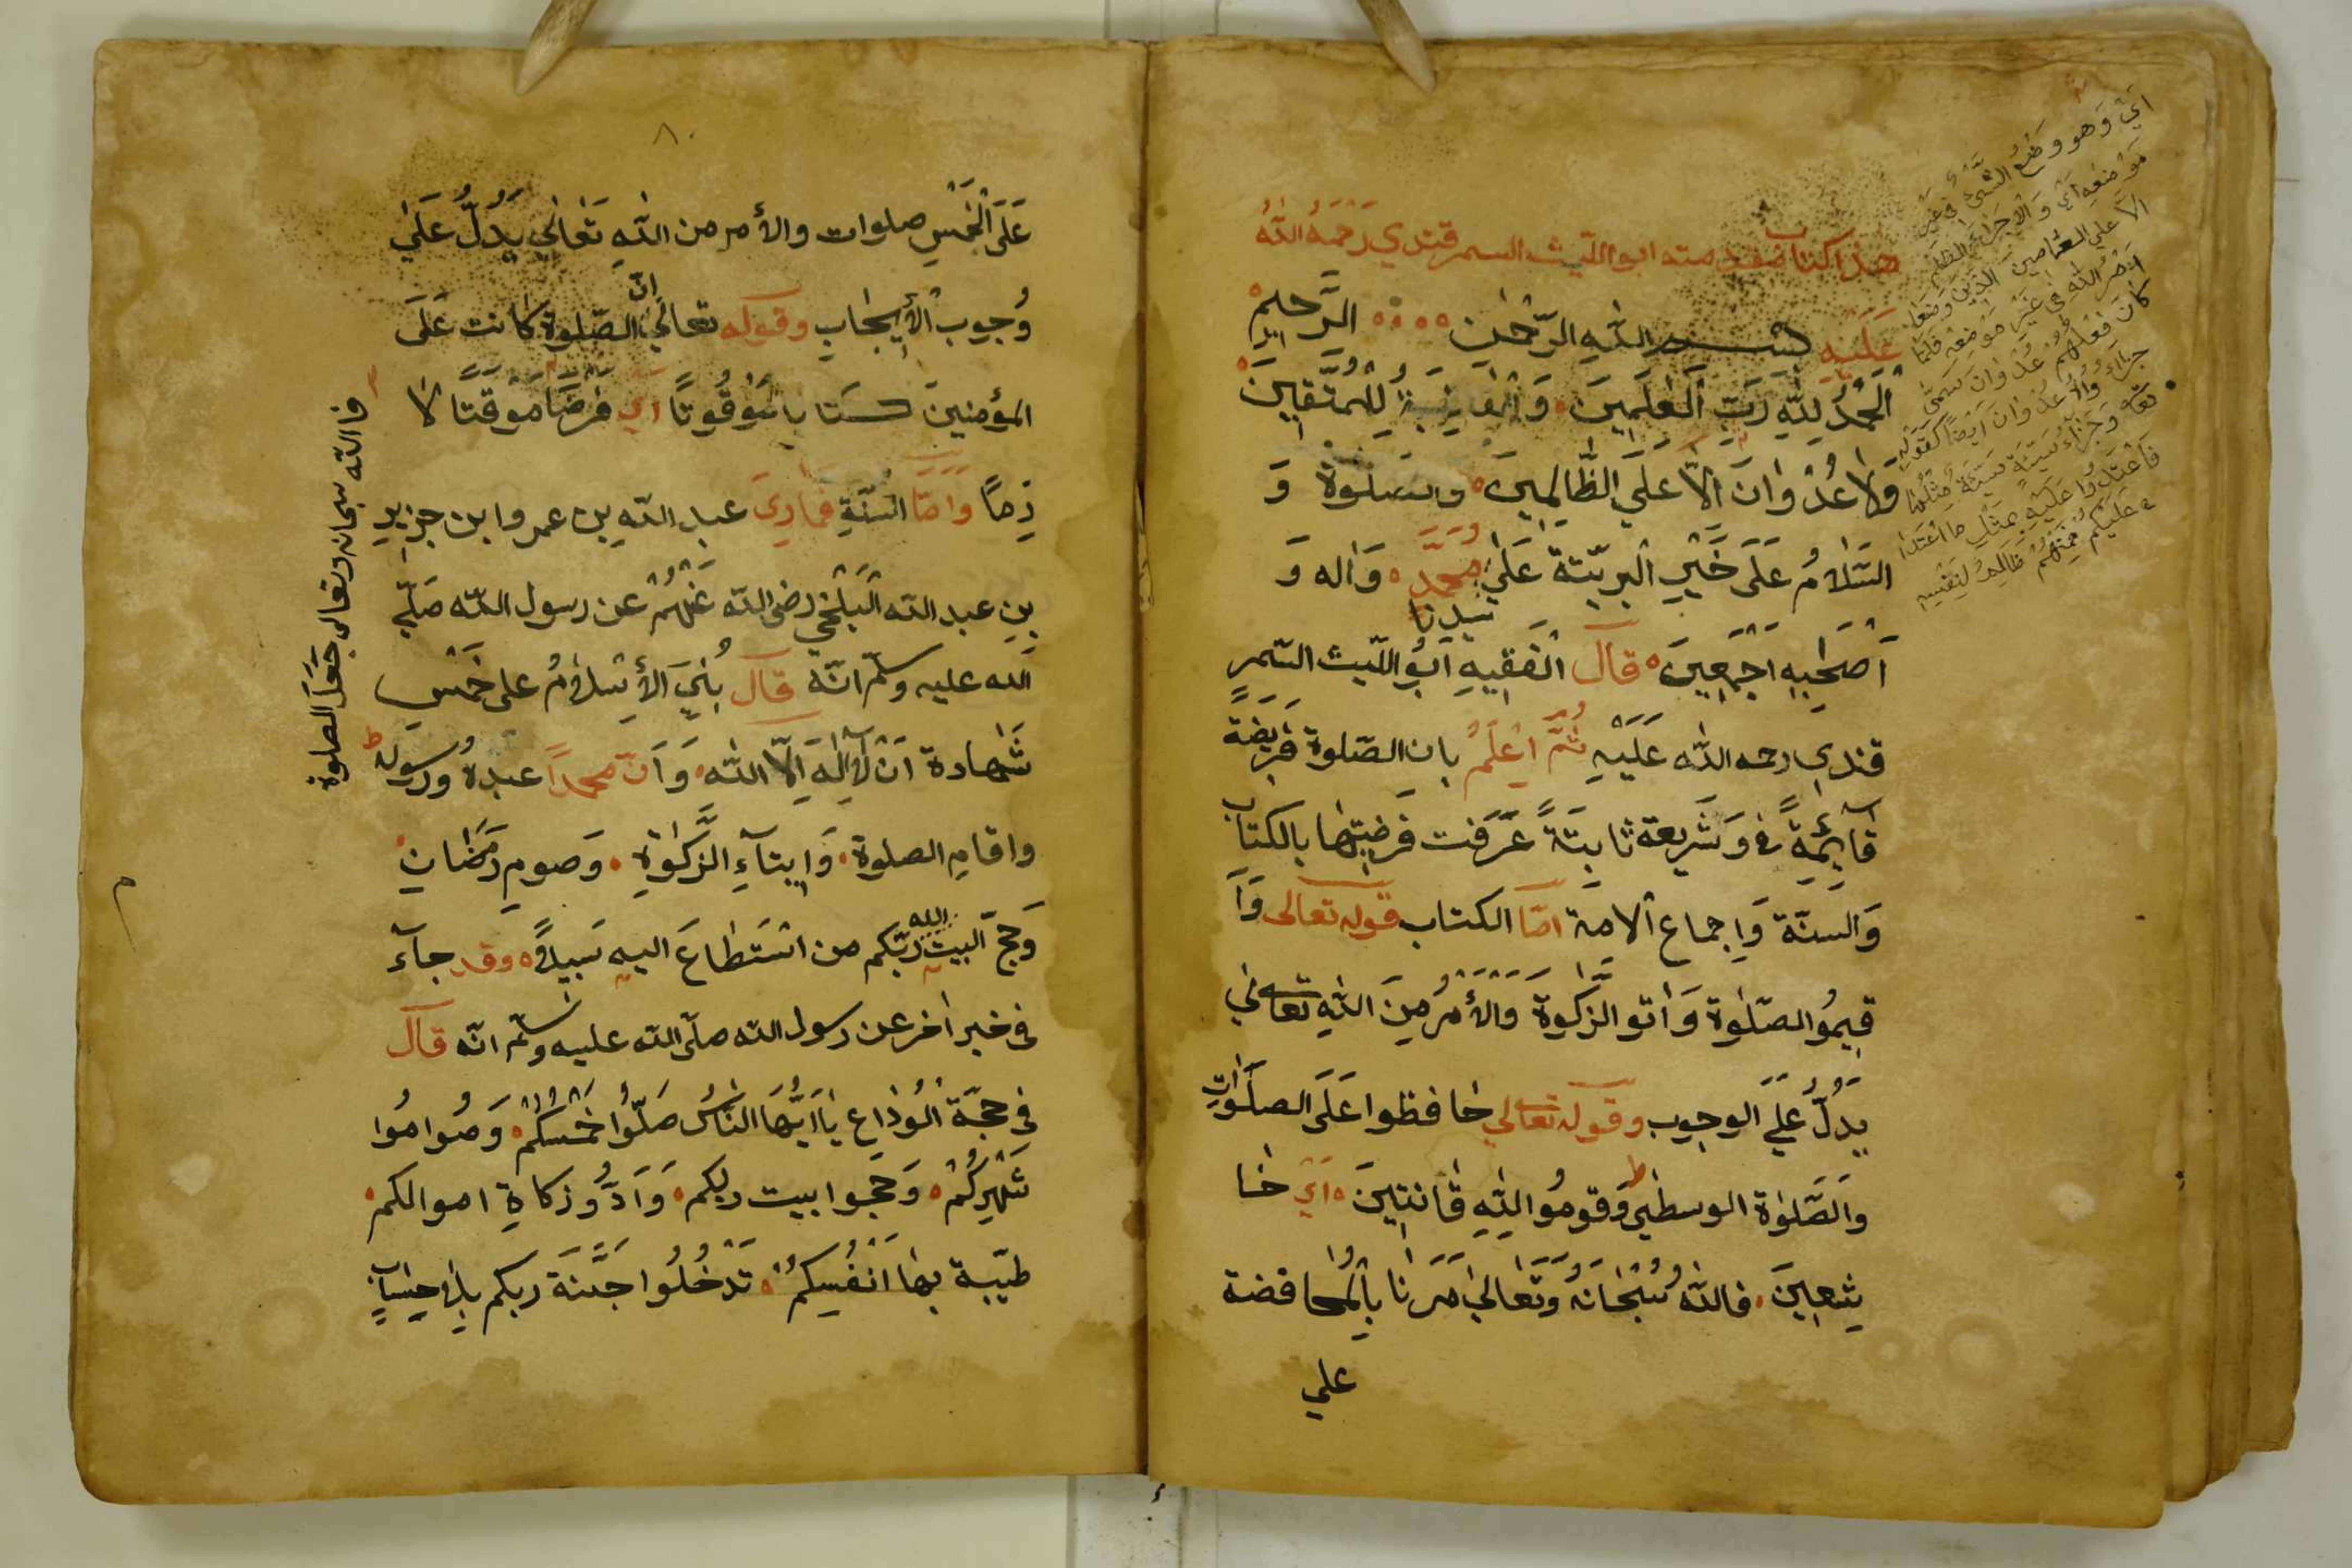 هذا كتاب مقدمته ابو الليث السمرقندي رَحْمَةُ اللّٰهُ
عَلَيْهِ بسم اللّٰهِ الرَّحْمٰنِ الرَّحِيمِ
اَلْحَمْدُ لِلّٰهِ رَبِّ الْعٰلَمِينَ وَالْعَاقِبَةُ لِلْمُتَّقِينَ
وَلَا عُدْوَانَ اِلَّا عَلَى الظَّالِمِينَ وَ
السَّلَامُ عَلَى خَيْرِ الْبَرِيَّتَةِ عَلَى سيدنا مُحَمَّدٍ وَاٰله وَ
اَصْحٰبِهِ اَجْمَعِينَ قال الْفَقِيهِ اَبُو اللّيث السّمر
قندى رحمه اللّٰه عَلَيْهِ ثُمَّ اِعْلَمْ بان الصّلوة فَرِيضَةً
قَآئِمَةً فى وَشَرِيعة ثابتَةً عَرَفت فَرضيتها بالكتاب
وَالسنّة وَاِجماع الامة امّا الكتاب قوله تعالى وَاَ
قِيمُوا الصّلٰوة وَاٰتو الزّكٰوة وَالْأَمْرُ مِنَ اللّٰهِ تعالى
يَدُلُّ عَلَى الوجوب وقوله تعالى حٰافظوا عَلَى الصلَوٰاتِ
وَالصَّلوٰة الوسطى وَقومُوا لِلّٰهِ قٰانتِينَ اَىْ خٰا
شِعِينَ فاللّٰهُ سُبْحَانَهُ وَتَعَالىٰ اَمَرَنٰا بِالْمُحافضة
على
اَىْ وَهو وَضْعُ الشَّىْءِ فى غَيْرِ
مَوْضعِه اَىْ وَلَا جَزَاءَ الظلم
اِلَّا عَلى الظالمين الَّذِينَ وَضَعُوا
اَمْرَ اللّٰهِ فى غَيْرِ مَوْضِعِه فَلَمَّا
كٰانَ فِعْلُهُمْ عُدْوَان سَمّٰى
جَزَاءُ وَالْعُدْوَان اَيْضًا كَقَوْلِهِ
تعالى وَجَزَاءُ سَيِّئَةٍ سَيِّئَةٌ مِثْلُهَا
فَاعْتَدُوا عَلَيْهِ بِمِثْلِ مَا اعْتَدٰى
عَلَيْكُمْ فَمِنْهُمْ ظَالِمٌ لِنَفْسِهِ
٨٠
عَلَى الْخَمْسِ صلوات والأمر من اللّٰهِ تَعَالى يَدُلُّ عَلَى
وُجوب الْأَيجٰابِ وقوله تعالى انّ الصّلوة كٰانت عَلَى
المؤمنينَ كتابا مَوْقُوتًا اى فَرْضًا مَوقَتًا لا
زمًا وَاَمَّا السنّةِ فَمَا رِىَ عبد اللّه بن عمر وابن جزير
بن عبد اللّه الْبَلْخِى رضى اللّه عَنْهُمْ عن رسول اللّه صَلّى
اللّه عليه وسلّم انّه قال بُنِىَ الْأِسْلَامُ على خَمْسٍ
شَهادة اَنْ لَآ اِلٰهَ اِلَّا اللّٰه وَاَنّ محمداً عبدهُ ورسوله
واقامِ الصلوة وَاِيتآءِ الزَّكٰوةِ وَصومِ رَمَضَانِ
وَحَجّ البيت اللّه ربّكم من اسْتَطَاعَ اليه سَبيلًا وقد جآء
فى خبر اٰخر عن رسول اللّه صلّى اللّه عليه وسلّم انّه قال
فى حجّة الْوِدَاعِ يَا اَيُّهَا النَّاسُ صَلّوُا خَمْسَكُمْ وَصُوامُوا
شَهْرِكُمْ وَحَجوا بيت ربكم وَاَدُّو زكاةِ اموالكم
طيّبة بهٰا اَنْفُسِكُمْ تَدْخُلُوا جَنّةَ ربكم بِلٰا حِسٰابٍ
فا اللّه سبحانه وتعالى جَعَلَ الصلوة
م